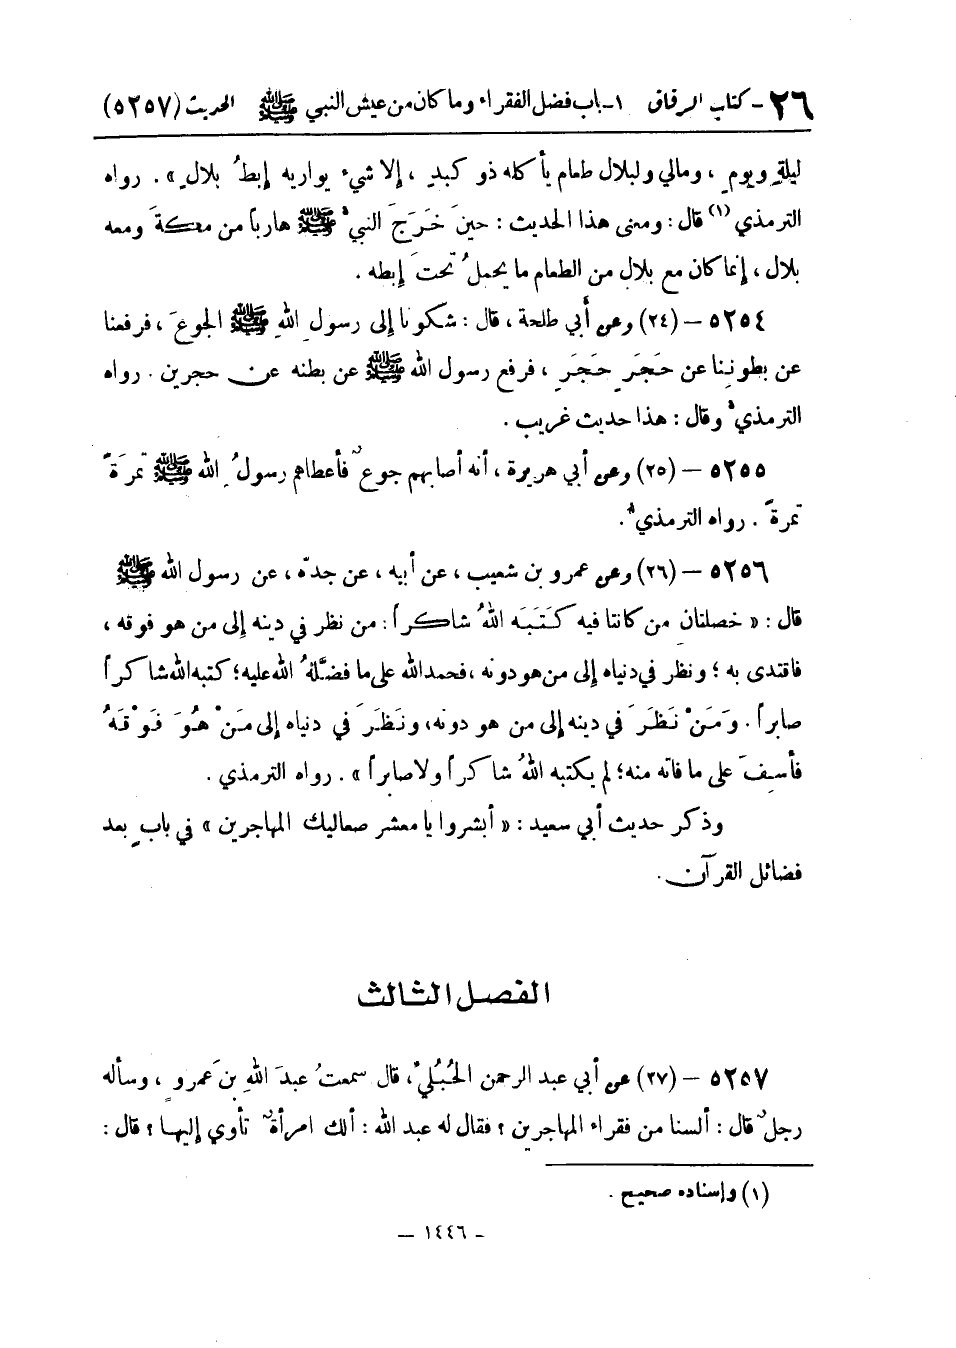 ٢٦- كتاب الرقاق ١- باب فضل الفقراء وما كان من عيش النبي ﷺ الحديث (٥٢٥٧)
ليلةٍ ويومٍ ، ومالي ولبلال طعام يأكله ذو كبدٍ ، إلا شيء يواريه إبطُ بلالٍ » . رواه
الترمذي (١) قال : ومعنى هذا الحديث : حينَ خَرَجَ النبيُّ ﷺ هارباً من مكةَ ومعه
بلال ، إنما كان مع بلال من الطعام ما يحملُ تحتَ إبطه .
٥٢٥٤ – (٢٤) وعن أبي طلحة ، قال : شكونا إلى رسولِ اللهِ ﷺ الجوعَ ، فرفعنا
عن بطوننا عن حَجَرٍ حَجَرٍ ، فرفع رسول الله ﷺ عن بطنه عن حجرين . رواه
الترمذيُّ وقال : هذا حديث غريب .
٥٢٥٥ – (٢٥) وعن أبي هريرة ، أنه أصابهم جوعٌ فأعطاهم رسولُ الله ﷺ تمرَةً
تمرةً . رواه الترمذيُّ .
٥٢٥٦ – (٢٦) وعن عمرو بن شعيب ، عن أبيه ، عن جدّه ، عن رسول الله ﷺ
قال : « خصلتان من كانتا فيه كَتَبَه اللهُ شاكراً : من نظر في دينه إلى من هو فوقه ،
فاقتدى به ؛ ونظر في دنياه إلى من هو دونه ، فحمد الله على ما فضَّلهُ الله عليه ؛ كتبه الله شاكراً
صابراً . وَمَنْ نَظَرَ في دينه إلى من هو دونه، ونَظَرَ في دنياه إلى مَنْ هُوَ فَوْقَهُ
فأسِفَ على ما فاته منه؛ لم يكتبه اللهُ شاكراً ولا صابراً » . رواه الترمذي .
وذكر حديث أبي سعيد : « أبشروا يا معشر صعاليك المهاجرين » في بابٍ بعد
فضائل القرآن .
الفصل الثالث
٥٢٥٧ – (٢٧) عن أبي عبد الرحمن الحُبُليّ، قال سمعتُ عبدَ اللهِ بنَ عمرو ، وسأله
رجلٌ قال : ألسنا من فقراء المهاجرين ؟ فقال له عبد الله : ألك امرأةٌ تأوي إليها ؟ قال :
(١) وإسناده صحيح .
– ١٤٤٦ –